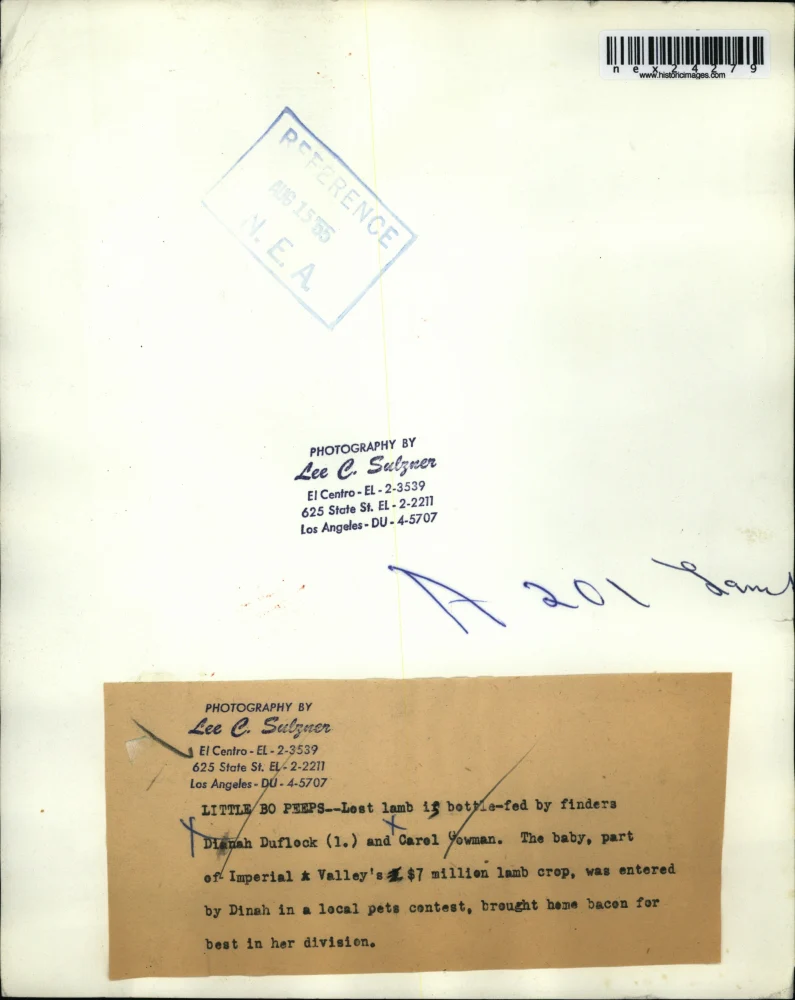 nex24279
www.historicimages.com
REFERENCE
AUG 15 '55
N. E. A.
PHOTOGRAPHY BY
Lee C. Sulzner
El Centro - EL - 2-3539
625 State St. EL - 2-2211
Los Angeles - DU - 4-5707
A 201 Lamb
PHOTOGRAPHY BY
Lee C. Sulzner
El Centro - EL - 2-3539
625 State St. EL - 2-2211
Los Angeles - DU - 4-5707
LITTLE BO PEEPS--Lost lamb is bottle-fed by finders
Duflock (l.) and Carol The baby, part
of Imperial Valley's $7 million lamb crop, was entered
by Dinah in a local pets contest, brought home bacon for
best in her division.